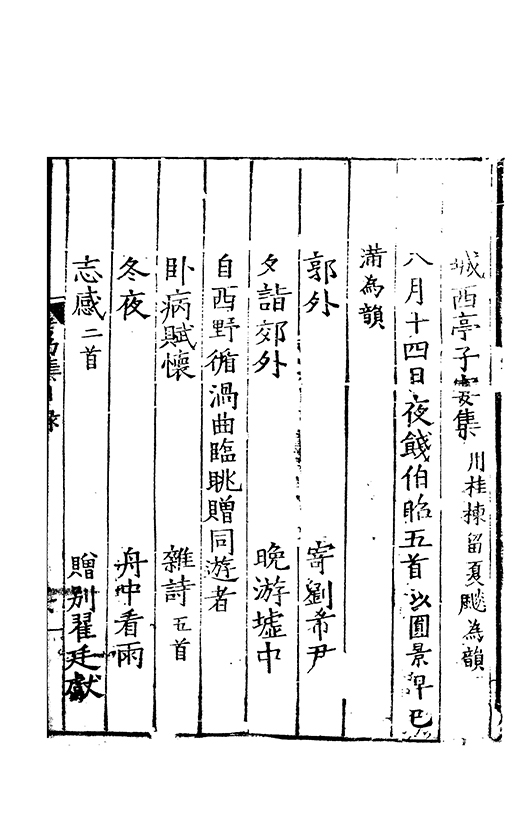 城西亭子宴集 用桂棟留夏飇為韻
八月十四日夜餞伯昭五首以圓景早已
滿為韻
郭外 寄劉希尹
夕詣郊外 晚游墟中
自西野循渦曲臨眺贈同遊者
卧病賦懷 雜詩五首
冬夜 舟中看雨
志感二首 贈别翟廷獻